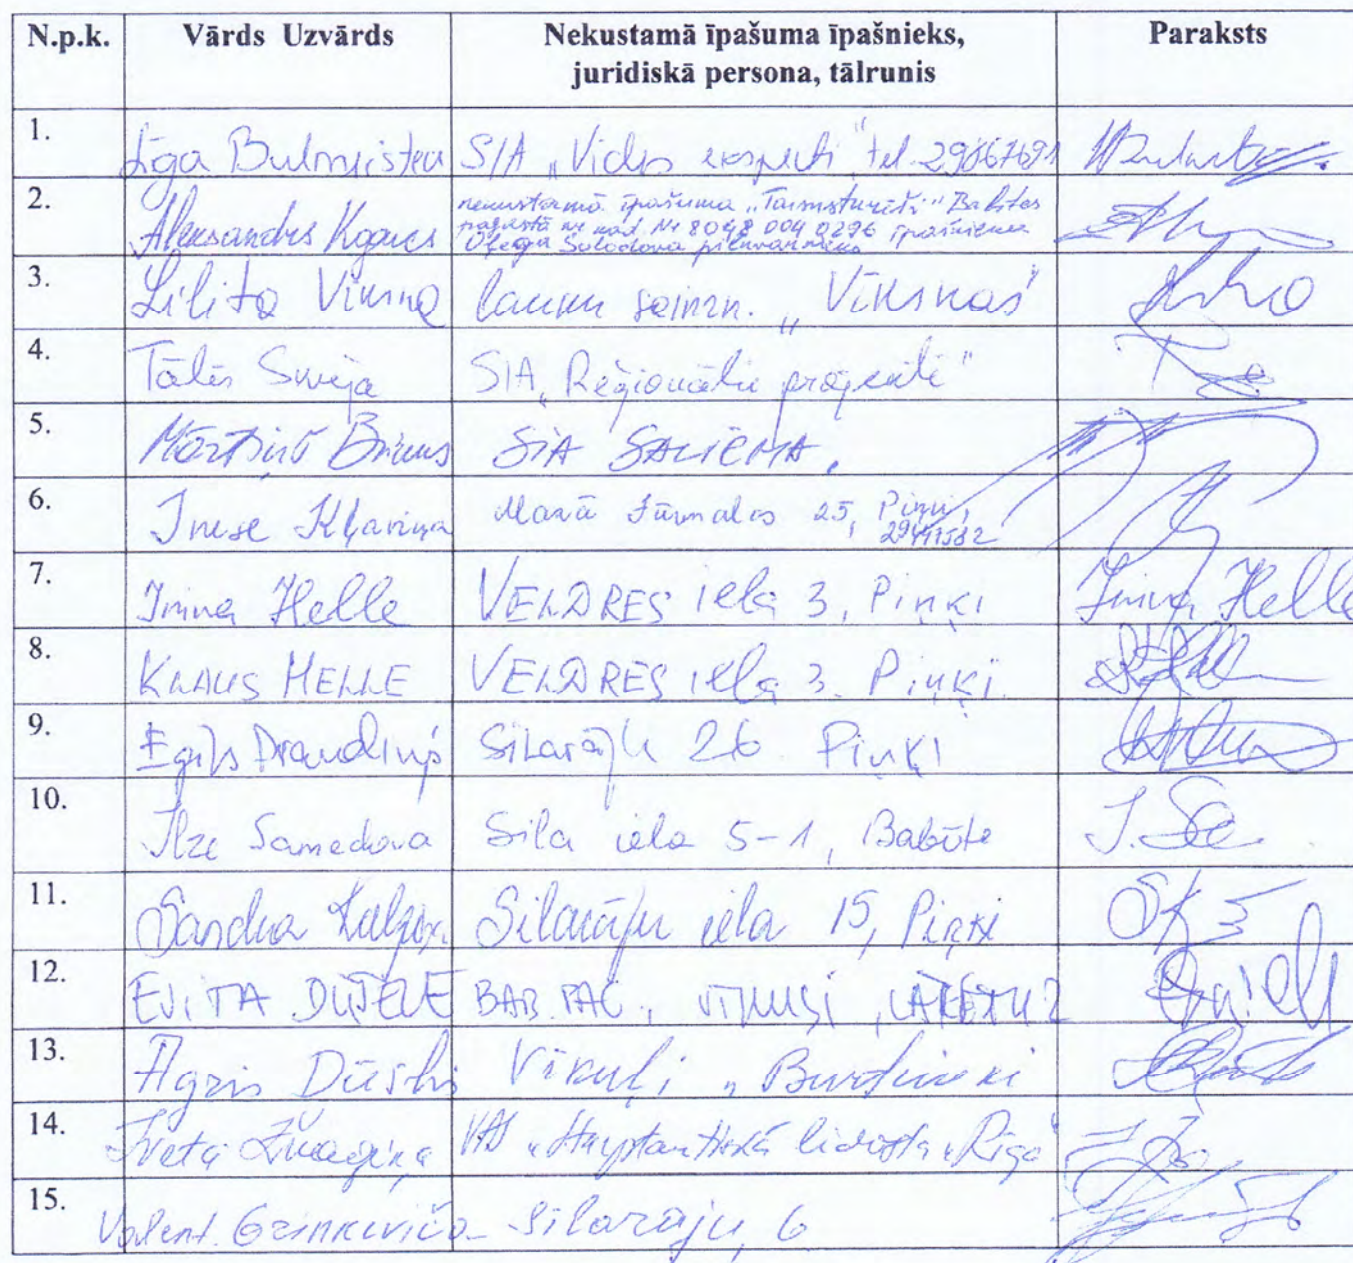 N.p.k. Vārds Uzvārds Nekustamā īpašuma īpašnieks, Paraksts
juridiskā persona, tālrunis
1. Līga Bulmistre SIA „Vides eksperti" tel. 29867691
2. Aleksandrs Kogans nekustamā īpašuma „Babītes
pagastā ar kad. Nr 8048 004 0296 īpašnieka
Oļega Solodova pilnvarnieks
3. Lilita Vīksna lauku saimn. „Vīksnas"
4. Tālis Skuja SIA „Reģionālie projekti"
5. Mārtiņš SIA SALIENA.
6. Inese Kļaviņa Mazā Jūrmalas 25, Piņķi,
29441582
7. Irina Helle VELDRES iela 3, Piņķi Irina Helle
8. KLAUS HELLE VELDRES iela 3. Piņķi.
9. Egils Draudiņš Silarāju 26 Piņķi
10. Ilze Samedova Sila iela 5-1, Babīte
11. Sandra Silarāju iela 15, Piņķi
12. EVITA BAB. PAG.,
13. Agris Vīkuļi „
14. Iveta VAS „Starptautiskā lidosta „Rīga"
15. Valent. Grinkeviča Silarāju, 6